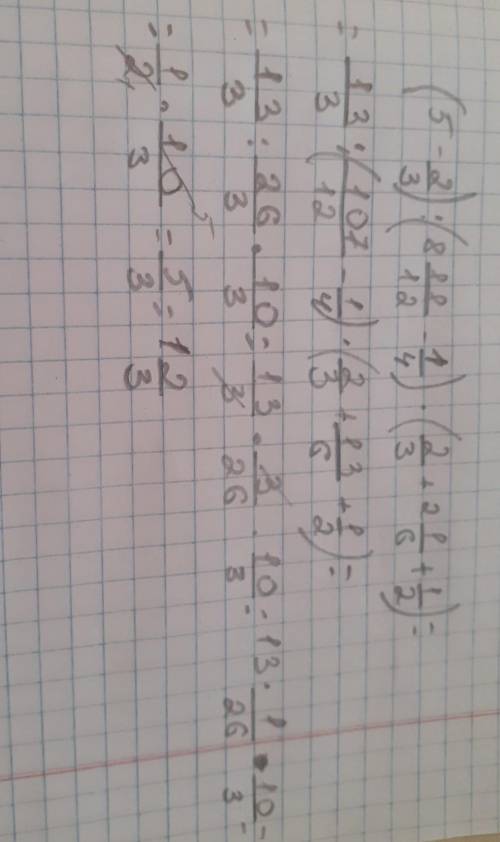 (5 - 2/3) : (8 11/12 - 1/4) · (2/3 + 2 1/6 + 1/2) =
= 13/3 : (107/12 - 1/4) · (2/3 + 13/6 + 1/2) =
= 13/3 : 26/3 · 10/3 = 13/3 · 3/26 · 10/3 = 13 · 1/26 · 10/3 =
= 1/2 · 10/3 = 5/3 = 1 2/3